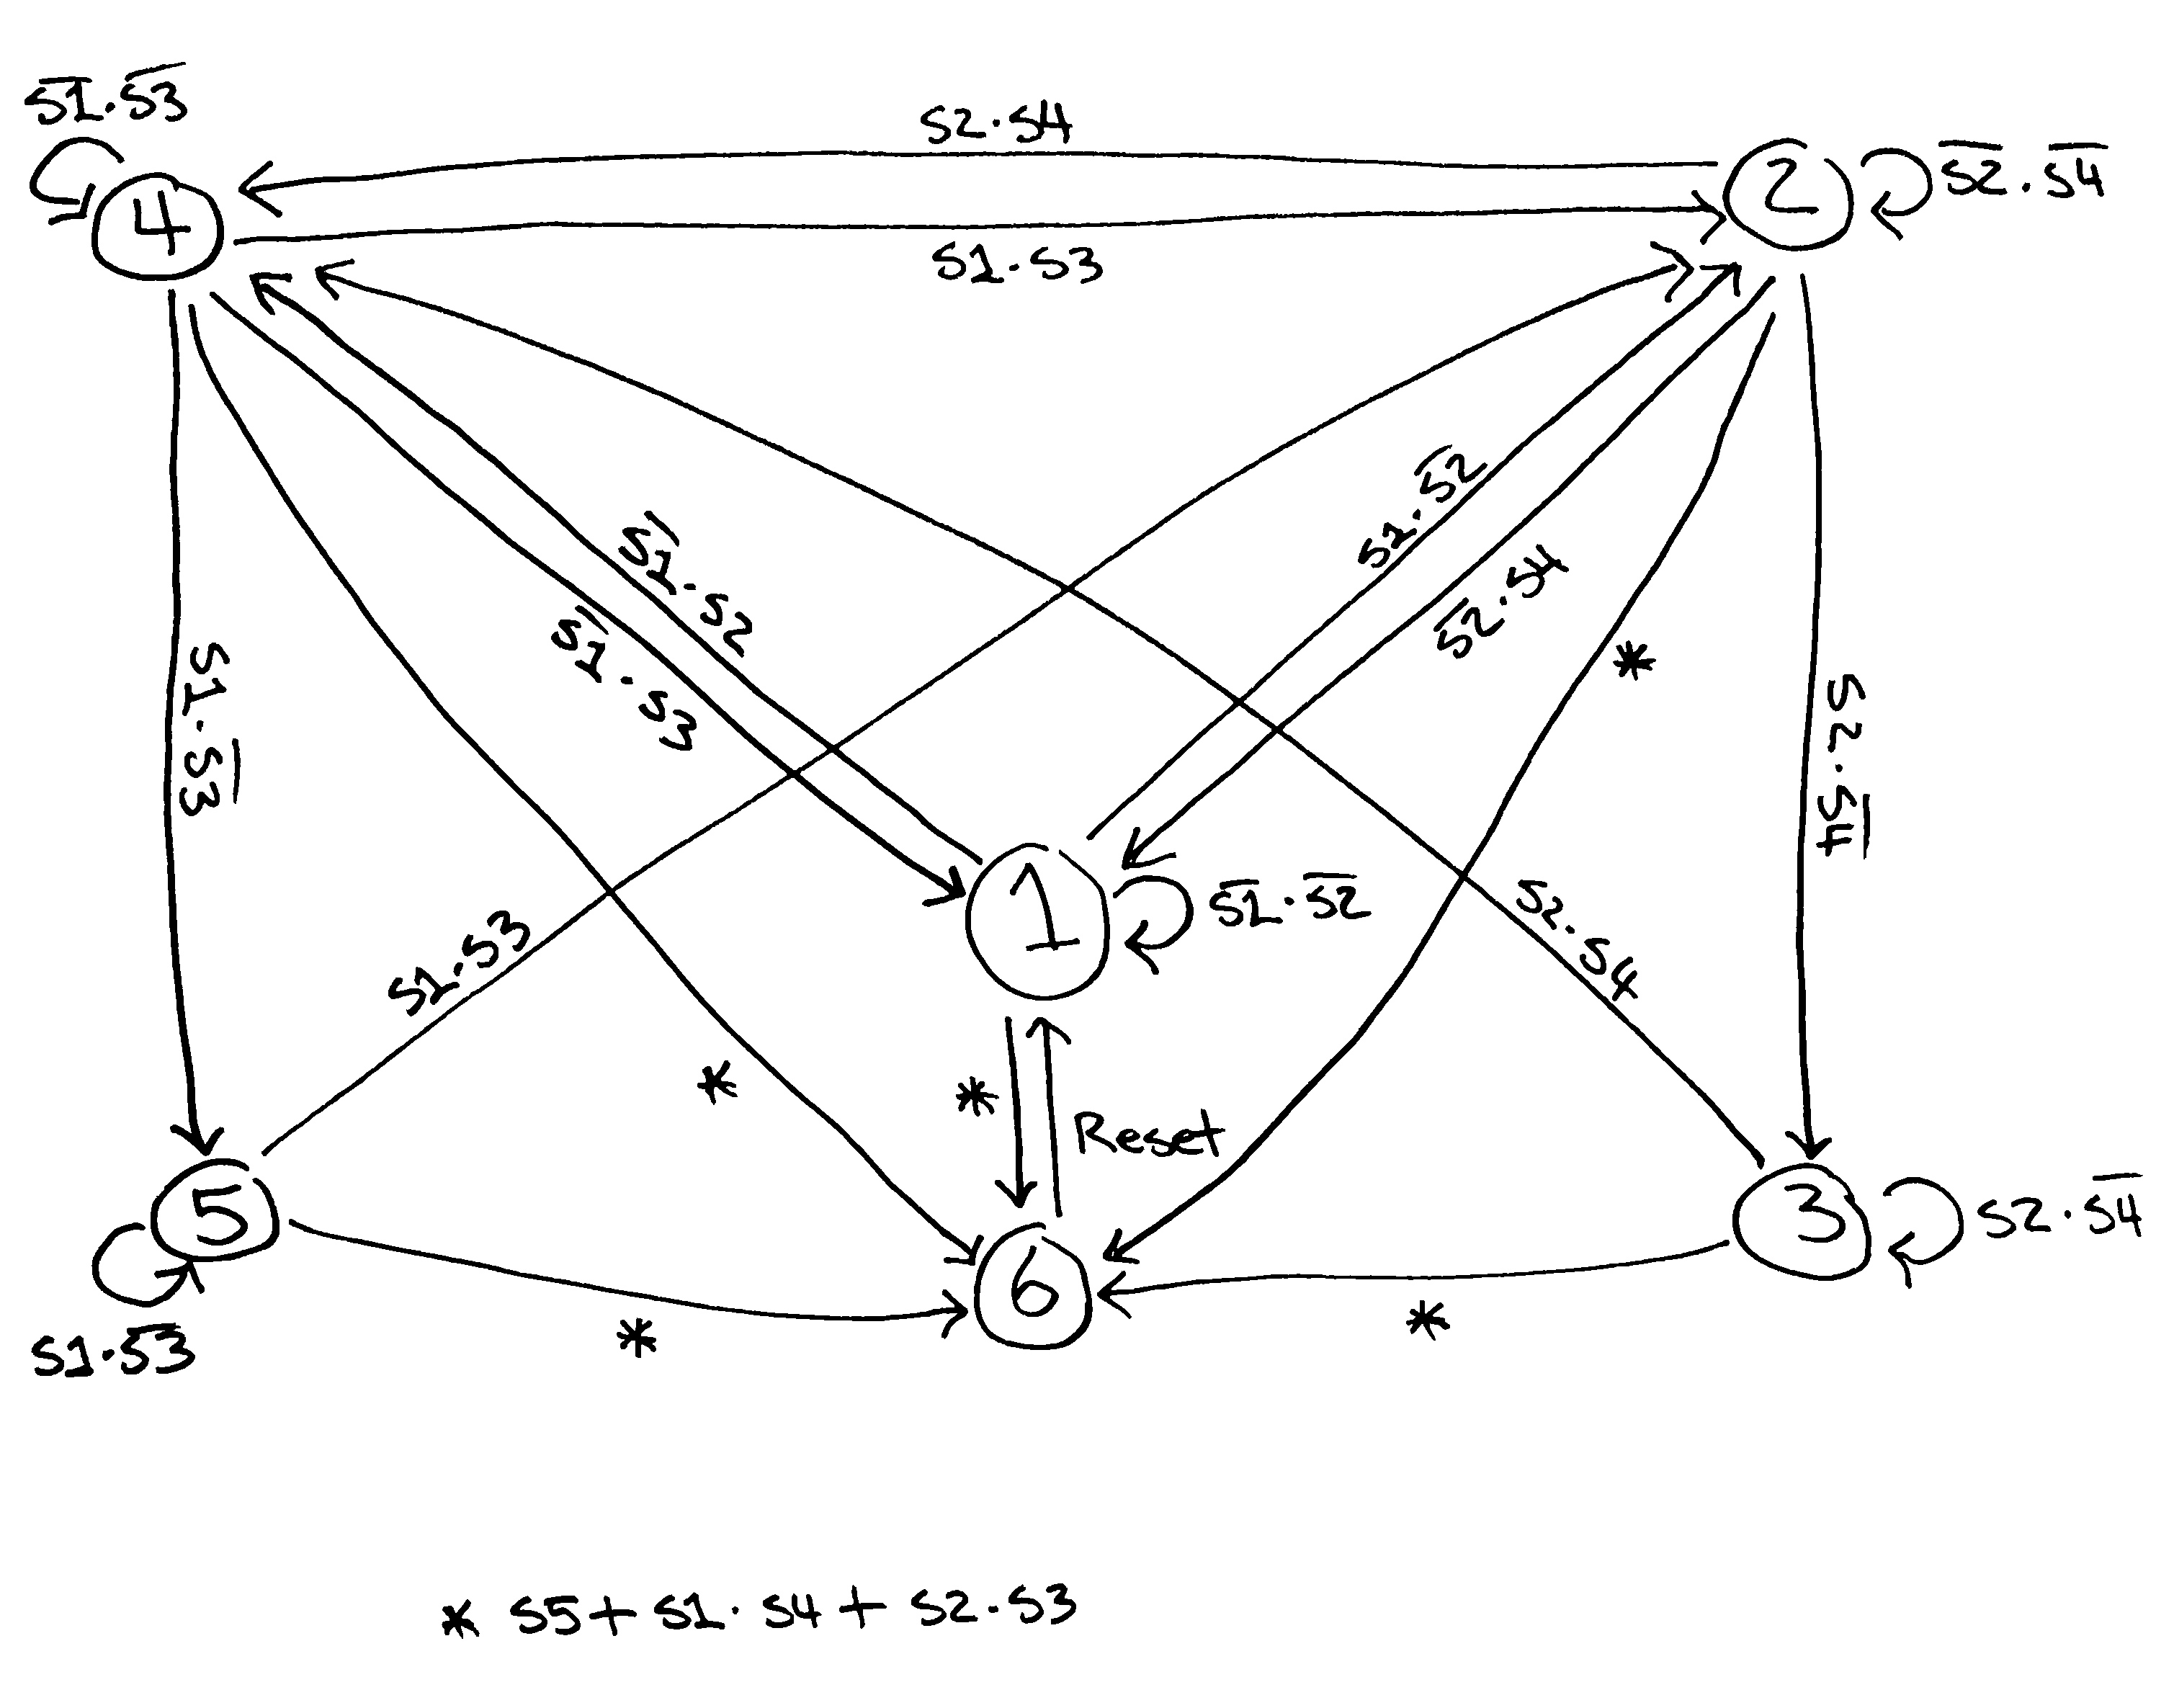 S̅1̅·S̅3̅
S2·S4
4
2
S̅2̅·S̅4̅
S1·S3
S1·S̅2̅
S̅1̅·S2
S̅2̅·S4
S̅1̅·S3
*
S1·S̅3̅
S2·S̅4̅
1
S̅1̅·S̅2̅
S1·S3
S2·S4
*
*
Reset
5
6
3
S2·S̅4̅
*
*
S1·S̅3̅
* S5+S1·S4+S2·S3